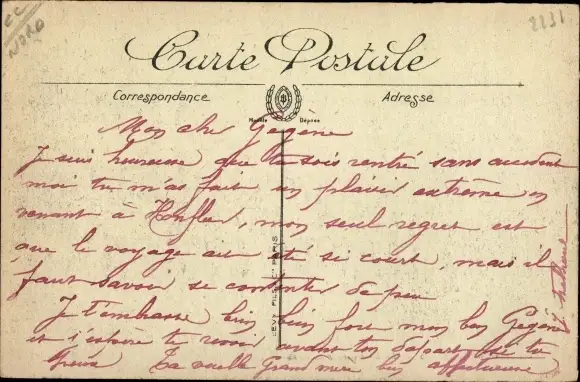 CC
NORD
2231
Carte Postale
Correspondance
Adresse
Modèle Déposé
LEVY FILS & Cie PARIS
Mon cher Gegène
Je suis heureuse que tu sois rentré sans accident
moi tu m'as fait un plaisir extrême en
venant à Honfleur, mon seul regret est
que le voyage ait été si court, mais il
faut savoir se contenter de peu
Je t'embrasse bien, bien fort mon bon Gegène
et j'espère te revoir avant ton départ
Ta vieille Grand mère bien affectueuse